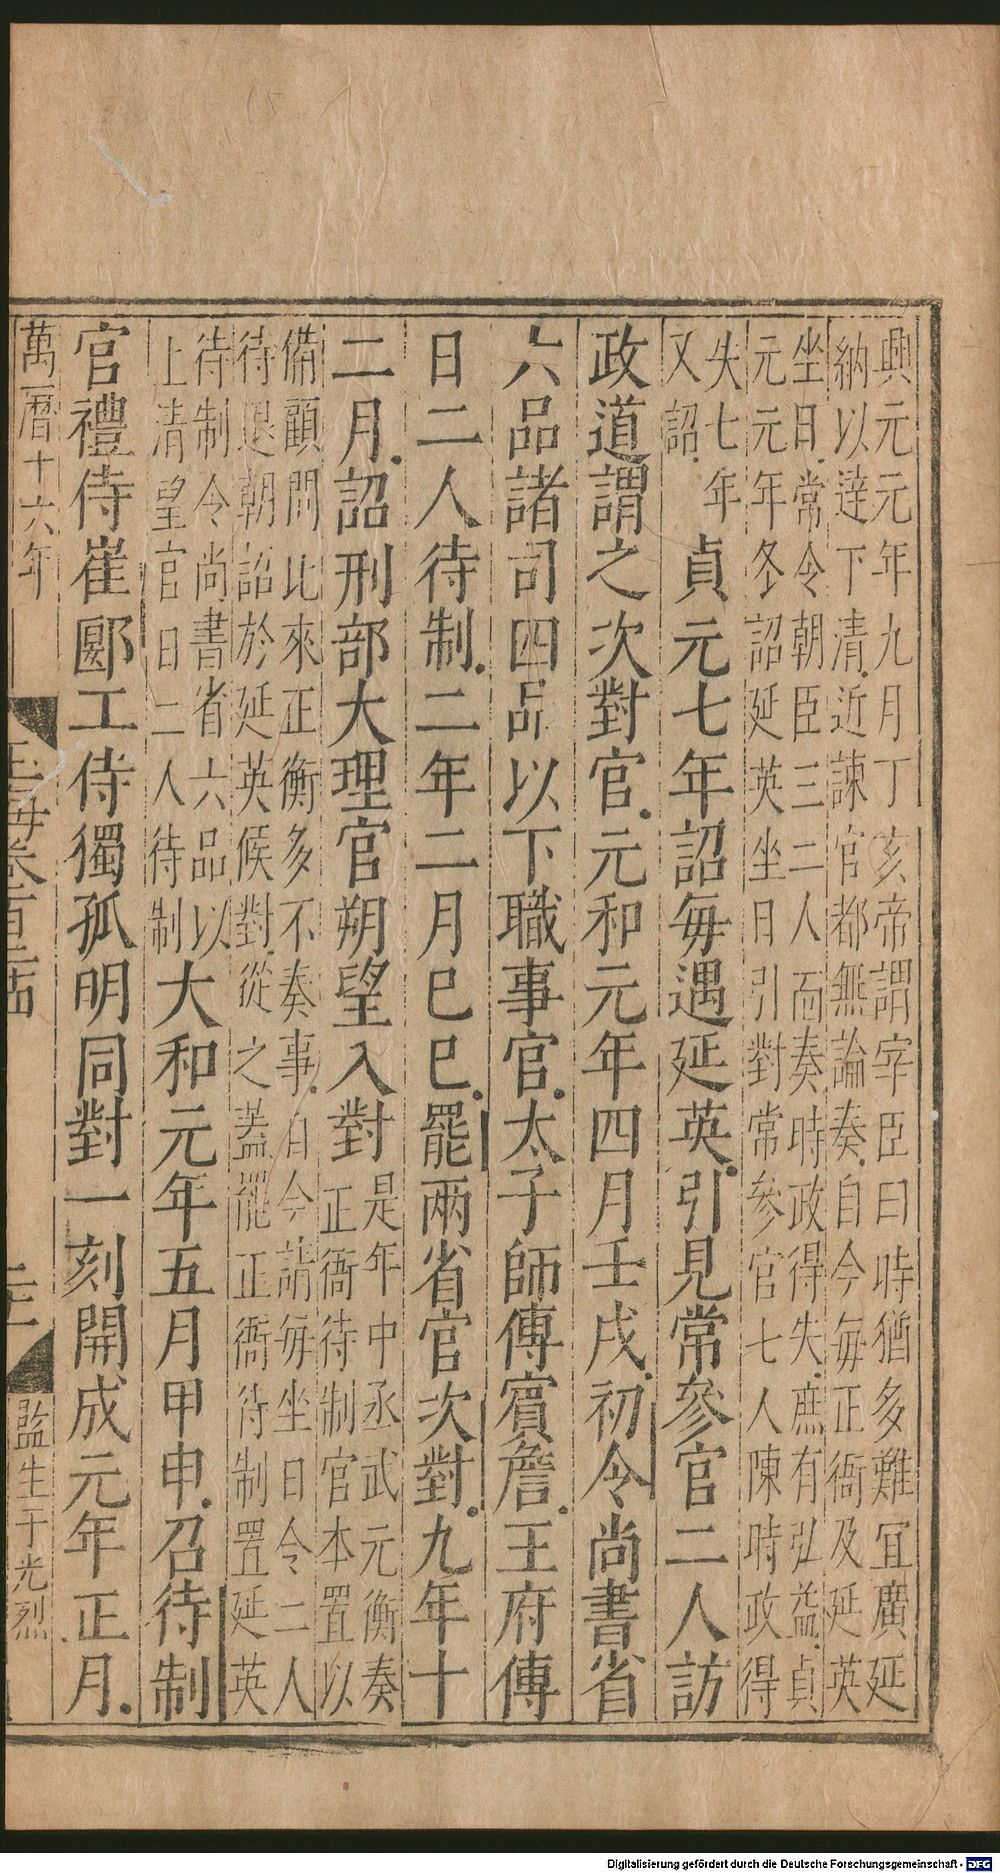 興元元年九月丁亥帝謂宰臣曰時猶多難宜廣延
納以達下清近諫官都無論奏自今每正衙及延英
坐日常令朝臣三二人面奏時政得失庶有弘益貞
元元年冬詔延英坐日引對常參官七人陳時政得
失七年
又詔
貞元七年詔每遇延英引見常參官二人訪
政道謂之次對官元和元年四月壬戌初令尚書省
六品諸司四品以下職事官太子師傅賓詹王府傅
日二人待制二年二月巳巳罷兩省官次對九年十
二月詔刑部大理官朔望入對
是年中丞武元衡奏
正衙待制官本置以
備顧問比來正衡多不奏事自今請每坐日令二人
待退朝詔於延英候對從之蓋罷正衙待制置延英
待制令尚書省六品以
上清望官日二人待制
大和元年五月甲申召待制
官禮侍崔郾工侍獨孤明同對一刻開成元年正月
萬曆十六年
玉海卷百三十四
監生于光烈
Digitalisierung gefördert durch die Deutsche Forschungsgemeinschaft - DFG